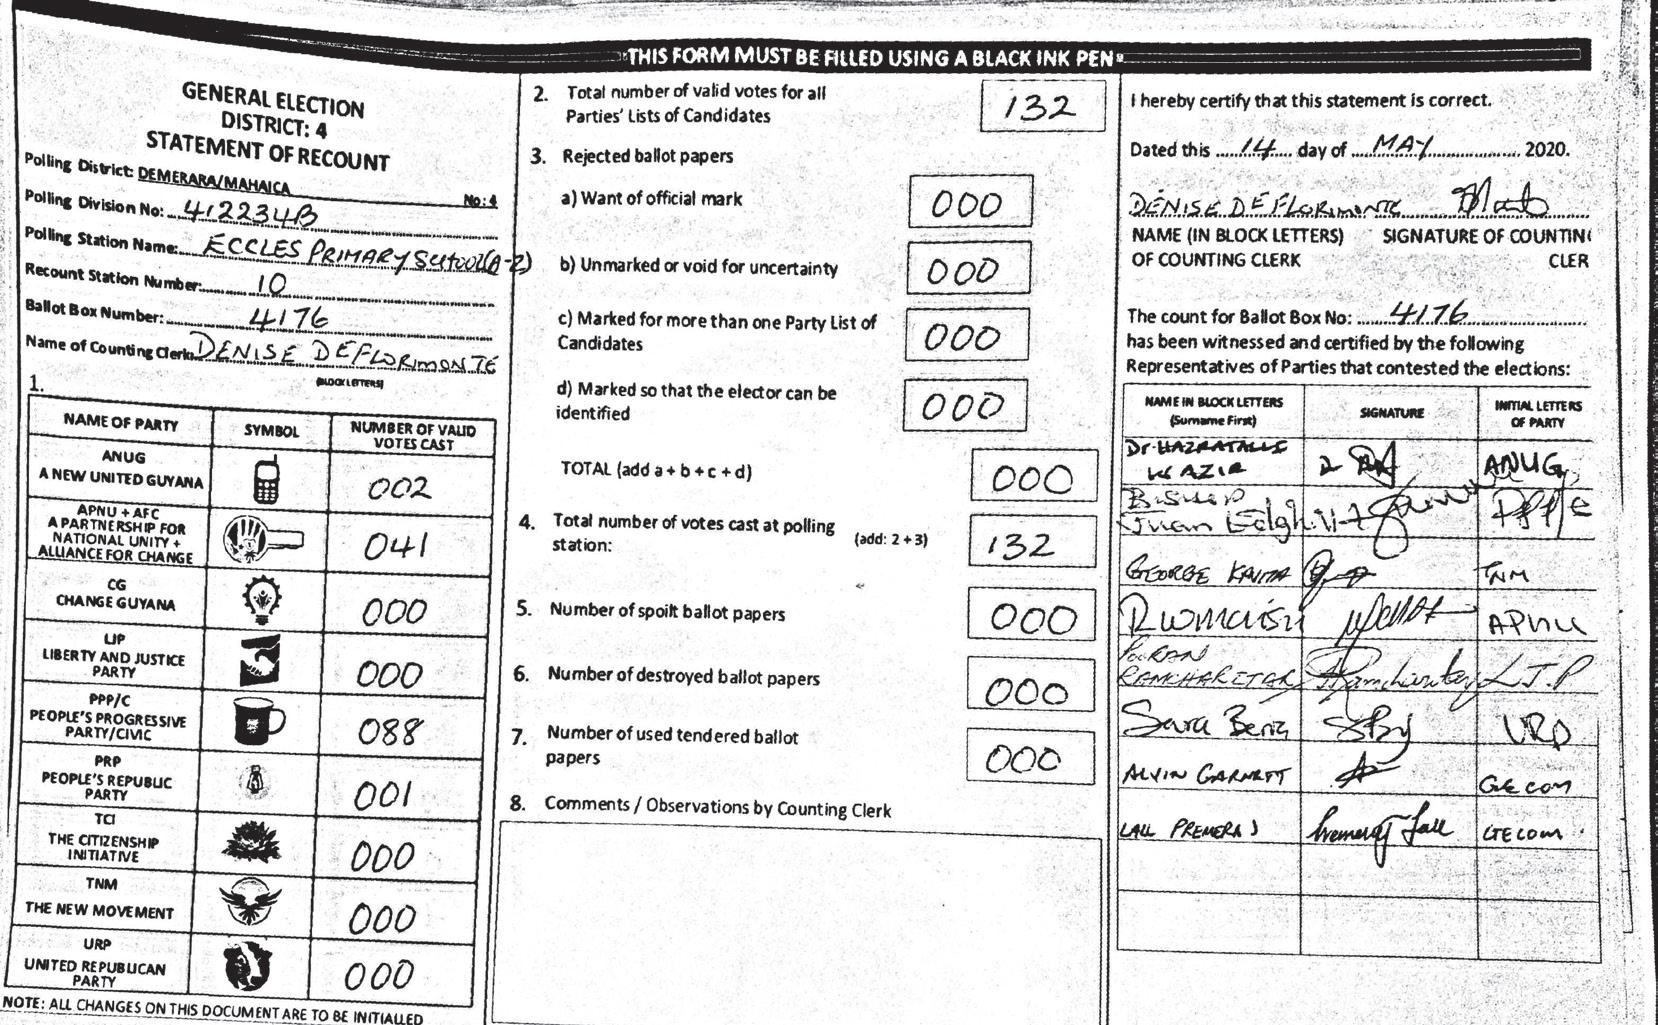 "THIS FORM MUST BE FILLED USING A BLACK INK PEN"
GENERAL ELECTION
DISTRICT: 4
STATEMENT OF RECOUNT
Polling District: DEMERARA/MAHAICA No: 4
Polling Division No: 412234B
Polling Station Name: ECCLES PRIMARY SCHOOL (A-Z)
Recount Station Number: 10
Ballot Box Number: 4176
Name of Counting Clerk: DENISE DEFLORIMONTE
(BLOCK LETTERS)
1.
NAME OF PARTY SYMBOL NUMBER OF VALID
VOTES CAST
ANUG
A NEW UNITED GUYANA 002
APNU + AFC
A PARTNERSHIP FOR
NATIONAL UNITY +
ALLIANCE FOR CHANGE 041
CG
CHANGE GUYANA 000
LJP
LIBERTY AND JUSTICE
PARTY 000
PPP/C
PEOPLE'S PROGRESSIVE
PARTY/CIVIC 088
PRP
PEOPLE'S REPUBLIC
PARTY 001
TCI
THE CITIZENSHIP
INITIATIVE 000
TNM
THE NEW MOVEMENT 000
URP
UNITED REPUBLICAN
PARTY 000
NOTE: ALL CHANGES ON THIS DOCUMENT ARE TO BE INITIALLED
2. Total number of valid votes for all
Parties' Lists of Candidates 132
3. Rejected ballot papers
a) Want of official mark 000
b) Unmarked or void for uncertainty 000
c) Marked for more than one Party List of
Candidates 000
d) Marked so that the elector can be
identified 000
TOTAL (add a + b + c + d) 000
4. Total number of votes cast at polling
station: (add: 2 + 3) 132
5. Number of spoilt ballot papers 000
6. Number of destroyed ballot papers 000
7. Number of used tendered ballot
papers 000
8. Comments / Observations by Counting Clerk
I hereby certify that this statement is correct.
Dated this 14 day of MAY 2020.
DENISE DEFLORIMONTE
NAME (IN BLOCK LETTERS) SIGNATURE OF COUNTIN
OF COUNTING CLERK CLER
The count for Ballot Box No: 4176
has been witnessed and certified by the following
Representatives of Parties that contested the elections:
NAME IN BLOCK LETTERS
(Surname First) SIGNATURE INITIAL LETTERS
OF PARTY
Dr. WAZIR ANUG
BISHOP
Juan Edghill PPP/C
GEORGE TNM
APNU
RAMCHARITAR L.J.P
Sara URP
ALVIN GARNETT GECOM
LALL PREMERAJ Premeraj Lall GECOM